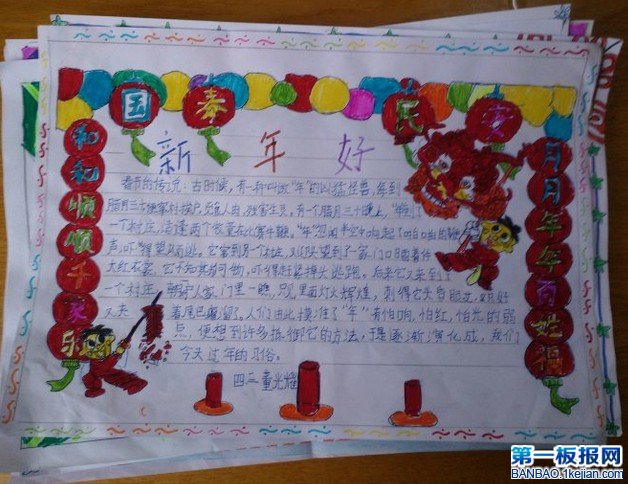 国泰民安
新年好
和和顺顺千家乐
月月年年百姓福
春节的传说：古时候，有一种叫做"年"的凶猛怪兽，每到
腊月三十，挨家村挨户，觅食人肉，残害生灵。有一个腊月三十晚上，"年"到了
一个村庄，适逢两个牧童在比赛牛鞭，"年"忽闻半空中响起了啪啪的鞭
声，吓得望风而逃。它窜到另一个村庄，又迎头望到了一家门口晒着件
大红衣裳，它不知其为何物，吓得赶紧掉头逃跑。后来它又来到了
一个村庄，朝一户人家门里一瞧，只见里面灯火辉煌，刺得它头昏眼花，只好
又夹着尾巴溜了。人们由此摸准了"年"有怕响，怕红，怕光的弱
点，便想到许多抵御它的方法，于是逐渐演化成，我们
今天过年的习俗。
四三 董光耀
第一板报网
BANBAO.1kejian.com